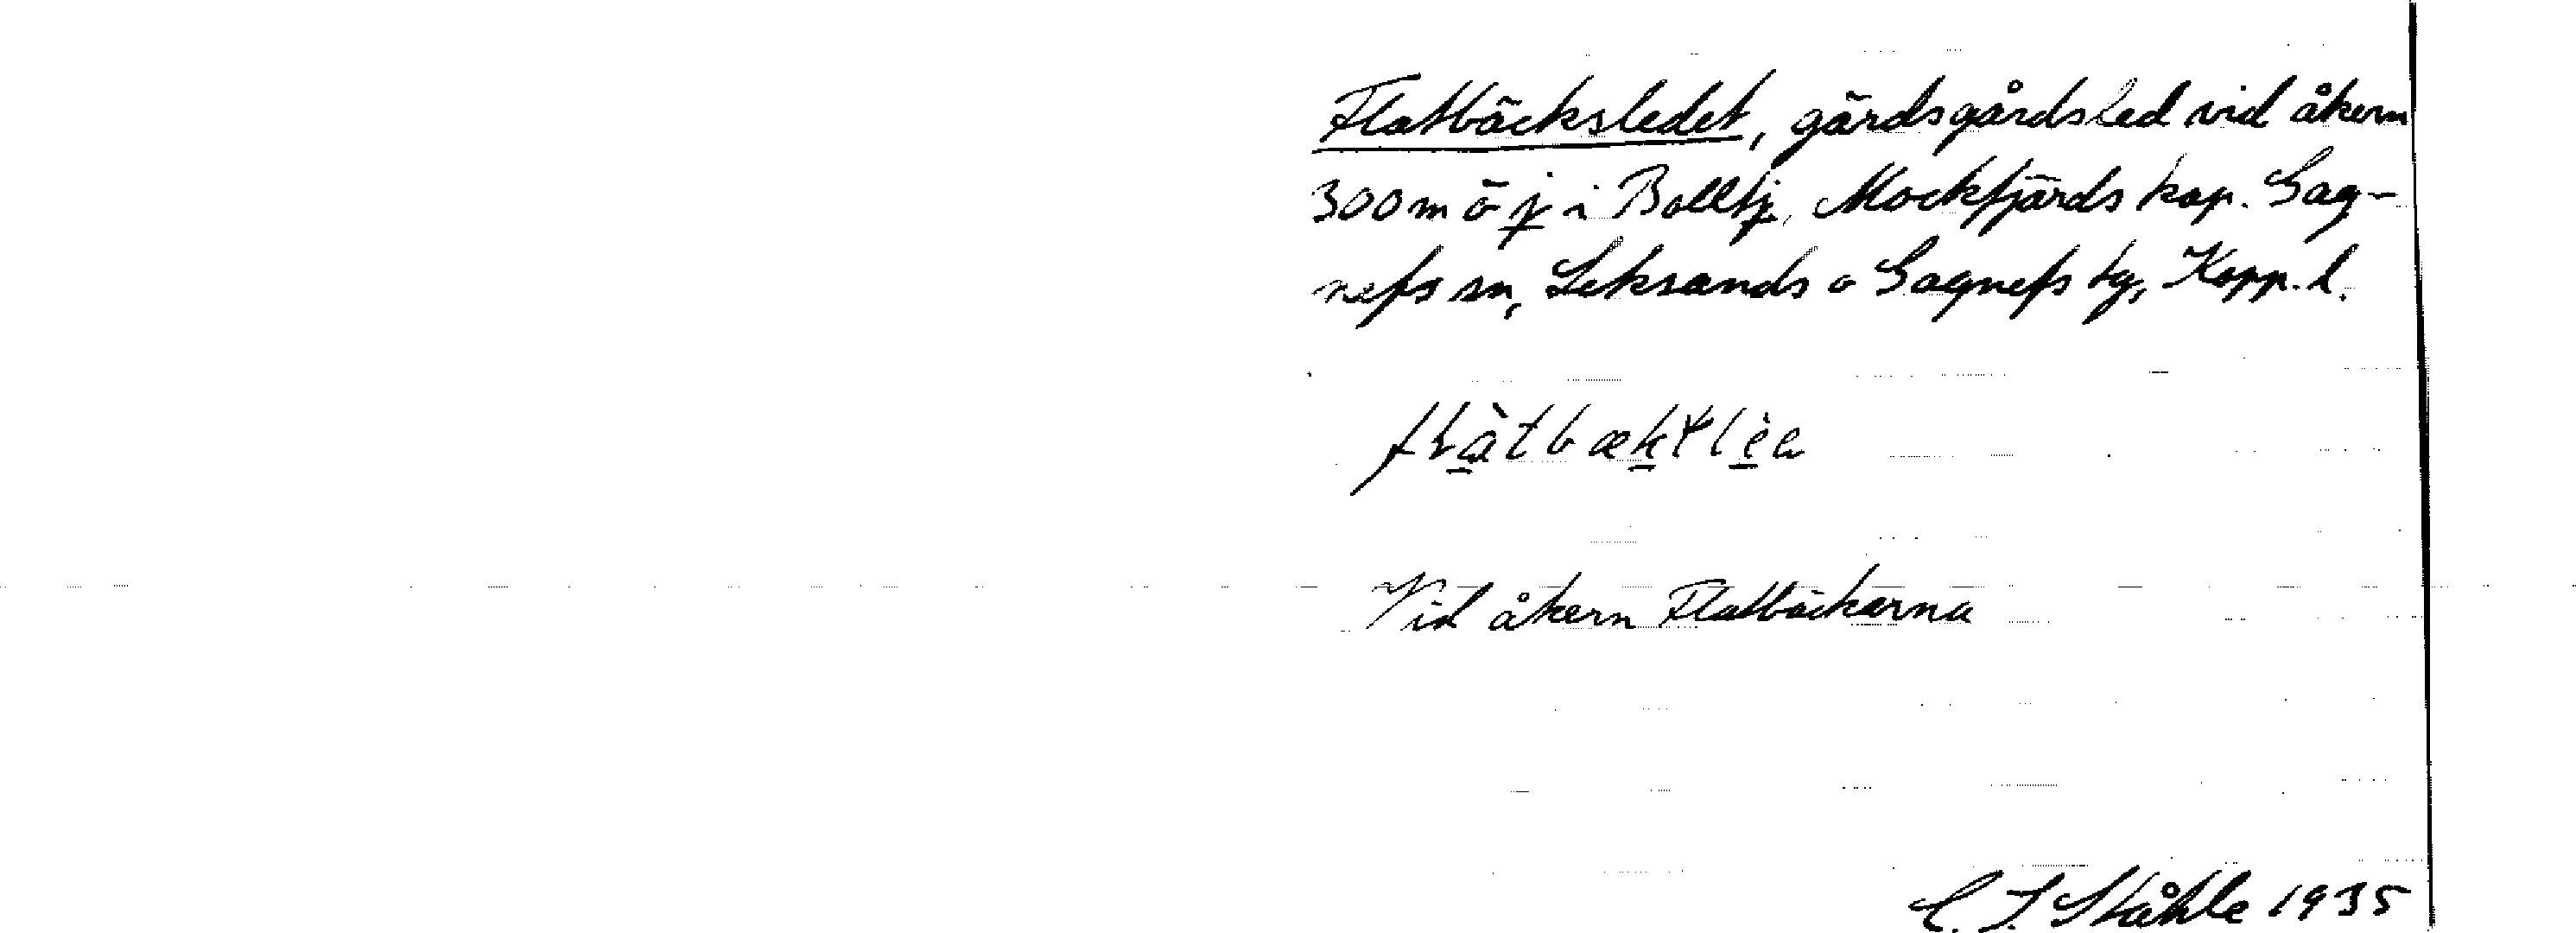 Flatbäcksledet, gärdsgårdsled vid åkern
300 m ö j i Bolltj, Mockfjärds kap. Gag-
nefs sn, Leksands o Gagnefs tg, Kopp. l.
Vid åkern Flatbäckarna
C. I. Ståhle 1935